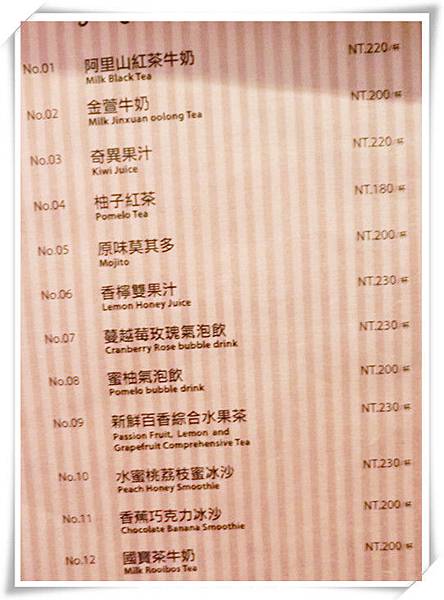 No.01 阿里山紅茶牛奶 NT.220/杯
Milk Black Tea
No.02 金萱牛奶 NT.200/杯
Milk Jinxuan oolong Tea
No.03 奇異果汁 NT.220/杯
Kiwi Juice
No.04 柚子紅茶 NT.180/杯
Pomelo Tea
No.05 原味莫其多 NT.200/杯
Mojito
No.06 香檸雙果汁 NT.230/杯
Lemon Honey Juice
No.07 蔓越莓玫瑰氣泡飲 NT.230/杯
Cranberry Rose bubble drink
No.08 蜜柚氣泡飲 NT.200/杯
Pomelo bubble drink
No.09 新鮮百香綜合水果茶 NT.230/杯
Passion Fruit, Lemon and
Grapefruit Comprehensive Tea
No.10 水蜜桃荔枝蜜冰沙 NT.230/杯
Peach Honey Smoothie
No.11 香蕉巧克力冰沙 NT.200/杯
Chocolate Banana Smoothie
No.12 國寶茶牛奶 NT.200/杯
Milk Rooibos Tea